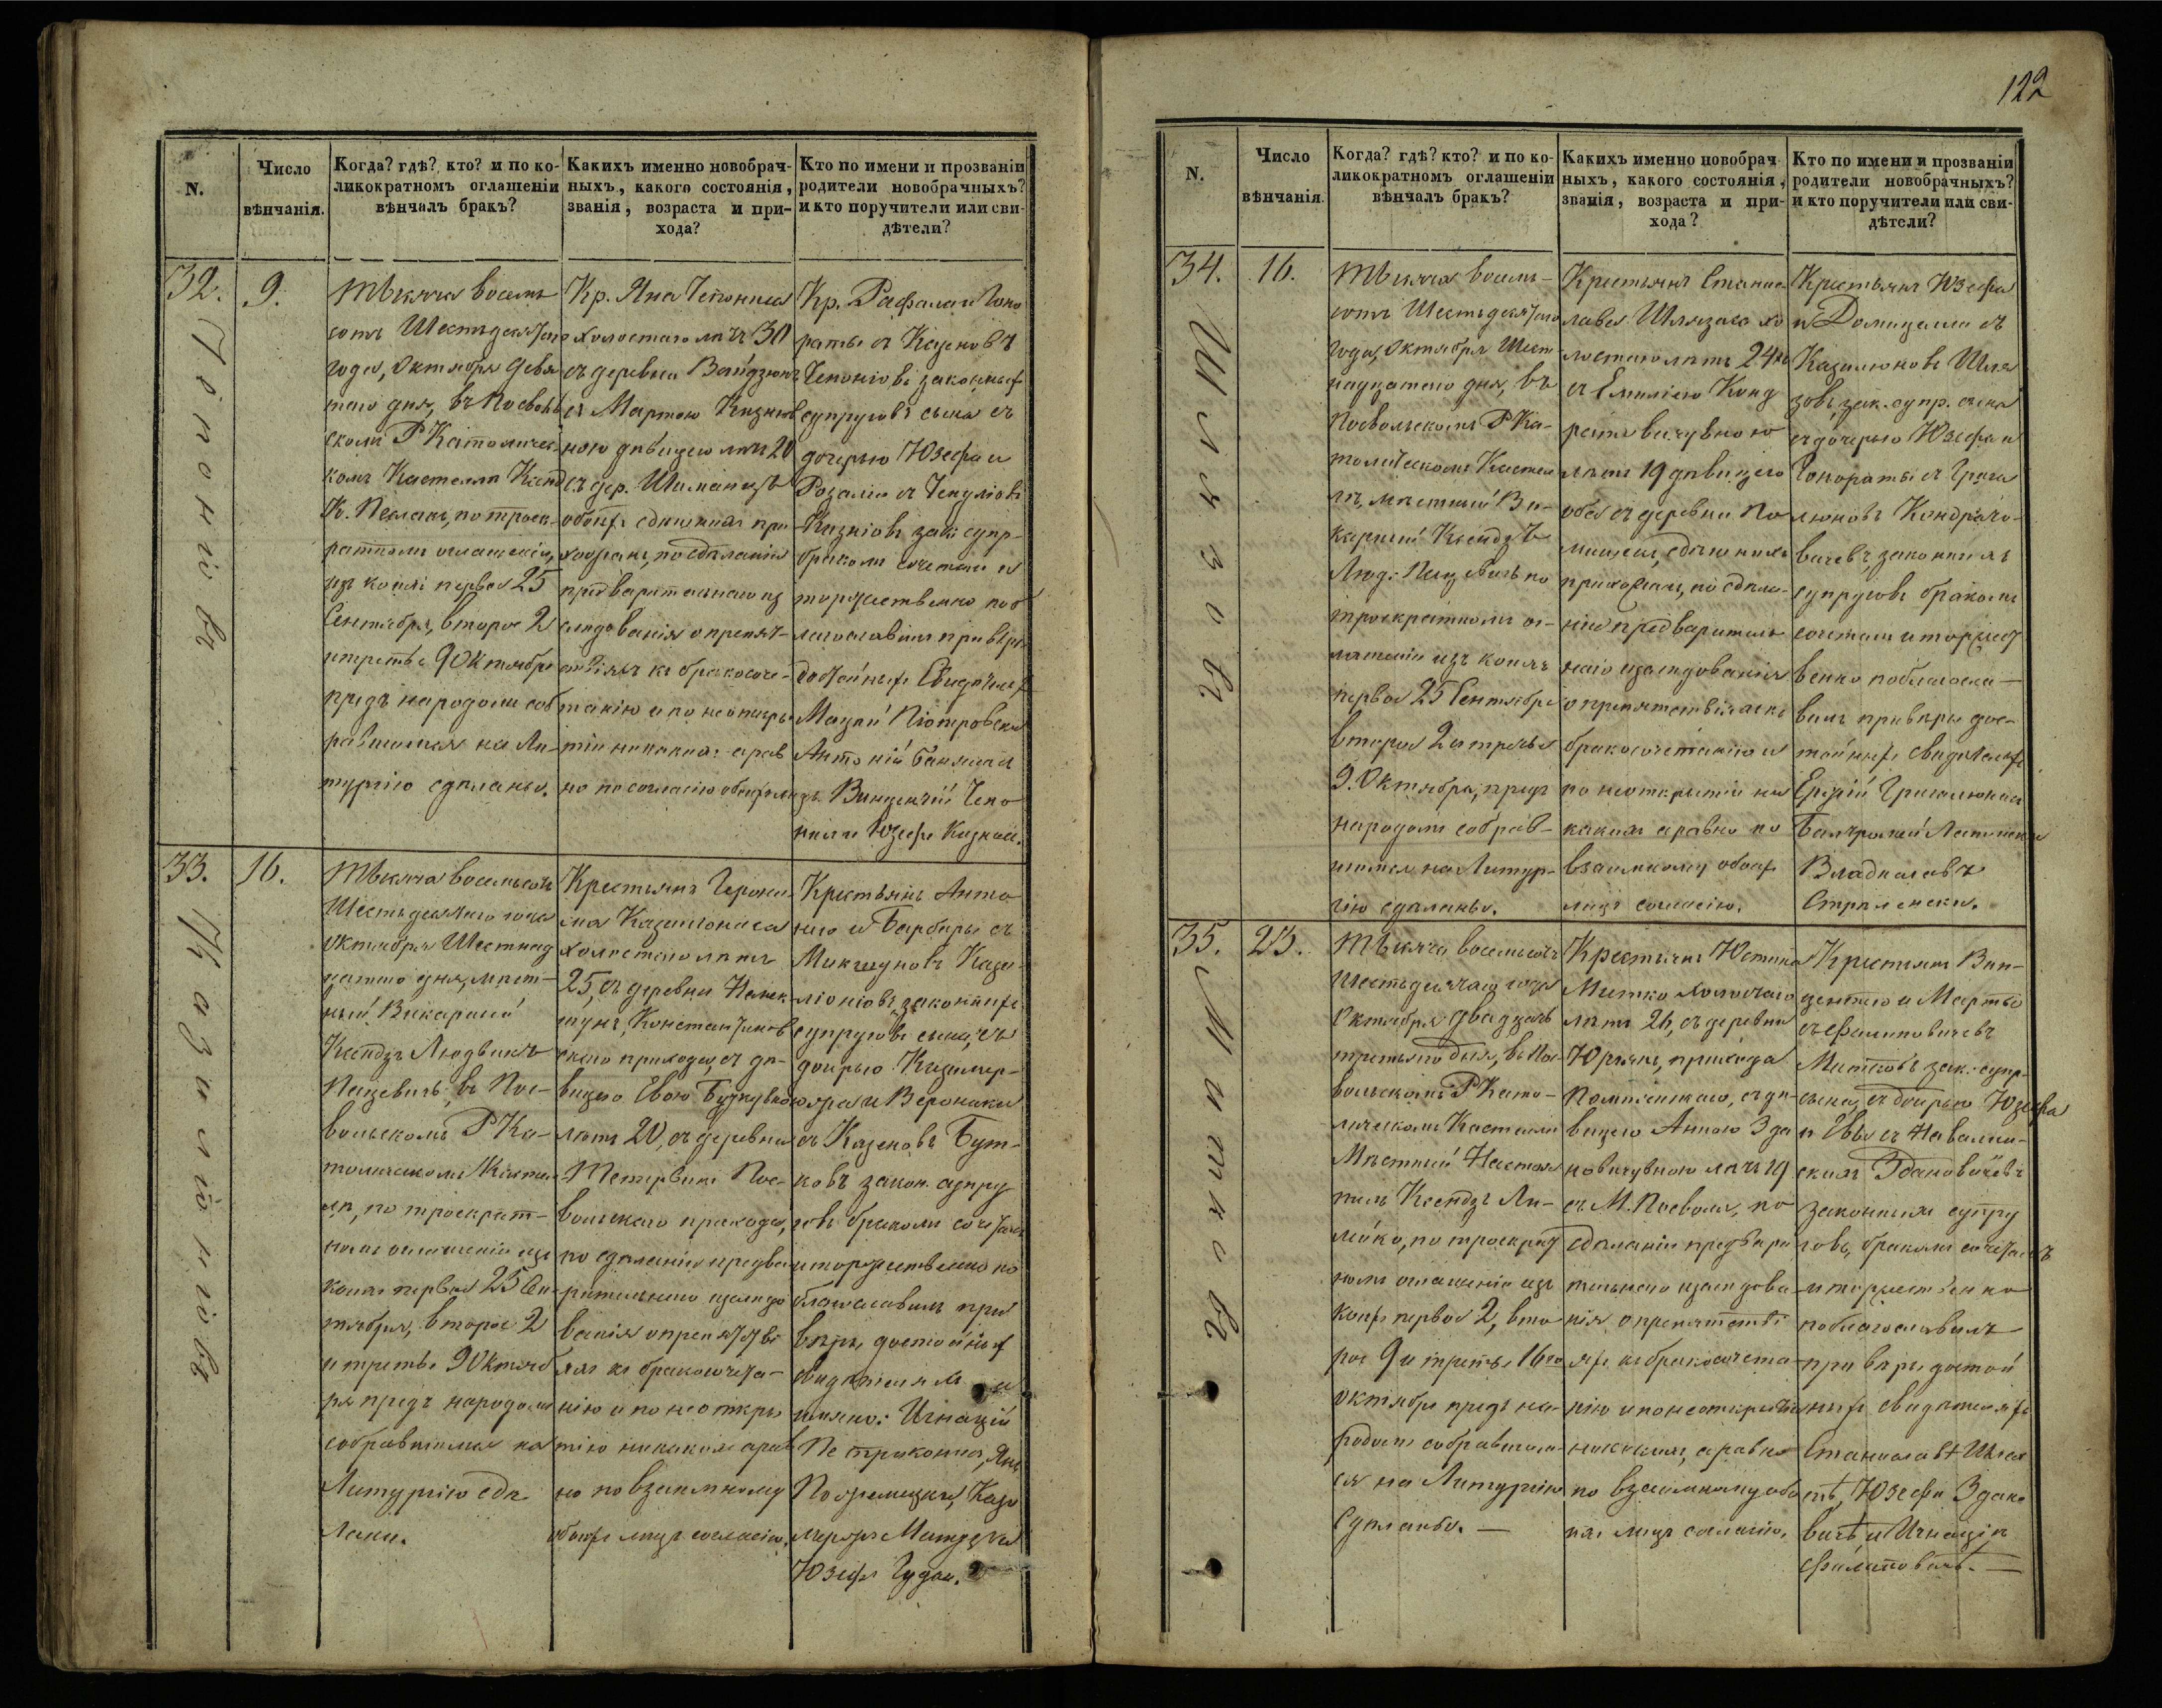 122
N.
Число
вѣнчанія.
Когда? гдѣ? кто? и по ко-
ликократномъ оглашеніи
вѣнчалъ бракъ?
Какихъ именно новобрач-
ныхъ, какого состоянія,
званія, возраста и при-
хода?
Кто по имени и прозванію
родители новобрачныхъ?
и кто поручители или сви-
дѣтели?
32.
9.
Тысяча восемь
сотъ Шестьдесятаго
года, Октября девя
таго дня, въ Посволь
скомъ Р Католичес
комъ Костелѣ Ксендз
по троек-
ратномъ оглашеніи,
изъ коихъ первое 25
Сентября, второе 2
и третье 9 Октября
предъ народомъ соб
равшимся на Ли-
тургію сдѣланы.
Кр. Яна Чепониса
холостаго лѣтъ 30
съ деревни Вайдзюнъ
съ Мартою Кизнюв
ною дѣвицею лѣтъ 20
съ дер.
обоихъ здѣшнихъ при
хожанъ, по сдѣланіи
предварительнаго из
слѣдованія о препят-
ствіяхъ къ бракосоче-
танію и по неоткры
тіи никакихъ а рав
но по согласію обоихъ лицъ
Кр. Рафала и Гоно
раты съ Казеновъ
Чепоніовъ законныхъ
супруговъ сына съ
дочерью Юзефа и
Розаліи съ
Кизніовъ зак. супр.
бракомъ сочеталъ и
торжественно поб
лагословилъ при вѣры
достойныхъ Свидѣтелях
Мацей Піотровски
Антоній
Винценчій Чепо
нисъ и Юзефъ Кизнис.
33.
16.
Тысяча восемьсотъ
Шестьдесятаго года
Октября Шестнад
цатаго дня, мѣст-
ный Викарный
Ксендзъ Людвикъ
Пацевичъ, въ Пос-
вольскомъ Р Ка-
толическомъ Косте-
лѣ, по троекрат-
номъ оглашеніи изъ
коихъ первое 25 Сен-
тября, второе 2
и третье 9 Октяб
ря предъ народомъ
собравшимся на
Литургію сдѣ
ланы.
Крестьянъ Герони-
ма Казилюниса
холостаго лѣтъ
25, съ деревни
Константинов
скаго прихода, съ дѣ-
вицею Евою Буткувною
лѣтъ 20, съ деревни
Пос-
вольскаго прихода,
по сдѣланіи предва
рительнаго изслѣдо
ванія о препятств
іяхъ къ бракосочета-
нію и по неоткры
тію никакихъ а рав
но по взаимному
обоихъ лицъ согласію,
Крестьянъ Анто
нія и Барбары съ
Кази-
ліоніовъ законныхъ
супруговъ сына, съ
дочерью Казимер-
и Вероники
съ Казеновъ Бут-
ковъ закон. супру
говъ бракомъ сочеталъ
и торжественно по
благословилъ при
вѣры достойныхъ
свидѣтеляхъ
именно: Игнацій
Янъ
Кази
миръ
Юзефъ
34.
16.
Тысяча восемь-
сотъ Шестьдесятаго
года, Октября Шест
надцатаго дня, въ
Посвольскомъ Р Ка-
толическомъ Косте
лѣ, мѣстный Ви-
карный Ксендзъ
Люд. Пацевичъ по
троекратномъ ог-
лашеніи изъ коихъ
первое 25 Сентября
второе 2 и третье
9. Октября, предъ
народомъ собрав-
шимся на Литур-
гію сдѣланы.
Крестьянъ Станис-
лава Шлязаса хо
лостаго лѣтъ 24хъ
съ Емиліею Конд
ратовичувною
лѣтъ 19 дѣвицею
оба съ деревни По
здѣшнихъ
прихожанъ, по сдѣла-
ніи предваритель
наго изслѣдованія
о препятствіяхъ къ
бракосочетанію и
по неоткрытіи ни
какихъ а равно по
взаимному обоих
лицъ согласію.
Крестьянъ Юзефа
и Доминики съ
Казилюновъ Шля
зовъ, зак. супр. сына
съ дочерью Юзефа и
Гонораты съ Грига
люновъ Кондрато-
вичевъ, законныхъ
супруговъ бракомъ
сочеталъ и торжест
венно поблагосло-
вилъ при вѣры дос-
тойныхъ свидѣтеляхъ
Ержій Григалюнас
Владиславъ
35.
23.
Тысяча восемьсотъ
Шестьдесятаго года
Октября двадцать
третьяго дня, въ Пос-
вольскомъ Р Като-
лическомъ Костелѣ
Мѣстный Настоя
тель Ксендзъ
по троекрат
номъ оглашеніи изъ
коихъ первое 2, вто
рое 9 и третье 16го
Октября предъ на-
родомъ собравшим-
ся на Литургію
Сдѣланы.
Крестьянъ Юстина
Митко холостаго
лѣтъ 26, съ деревни
Юрянъ, прихода
съ дѣ-
вицею Анною Зда
новичувною лѣтъ 19
съ М. Посволя, по
сдѣланіи предвари
тельнаго изслѣдова-
нія о препятстві
яхъ къ бракосочета-
нію и по неоткрытіи
никакихъ, а равно
по взаимному обо
ихъ лицъ согласію,
Крестьянъ Вин-
центія и Марты
съ Филиповичевъ
Митковъ зак. супр.
сына, съ дочерью Юзефа
и Евы съ
Здановичевъ
законныхъ супру
говъ, бракомъ сочеталъ
и торжественно
поблагословилъ
при вѣры достой
ныхъ свидѣтеляхъ
Станиславъ
Юзефъ Здано
вичъ и Игнацій
Филиповичъ.
Чепоніовъ
Казиліоніовъ
Шлязовъ
Митковъ